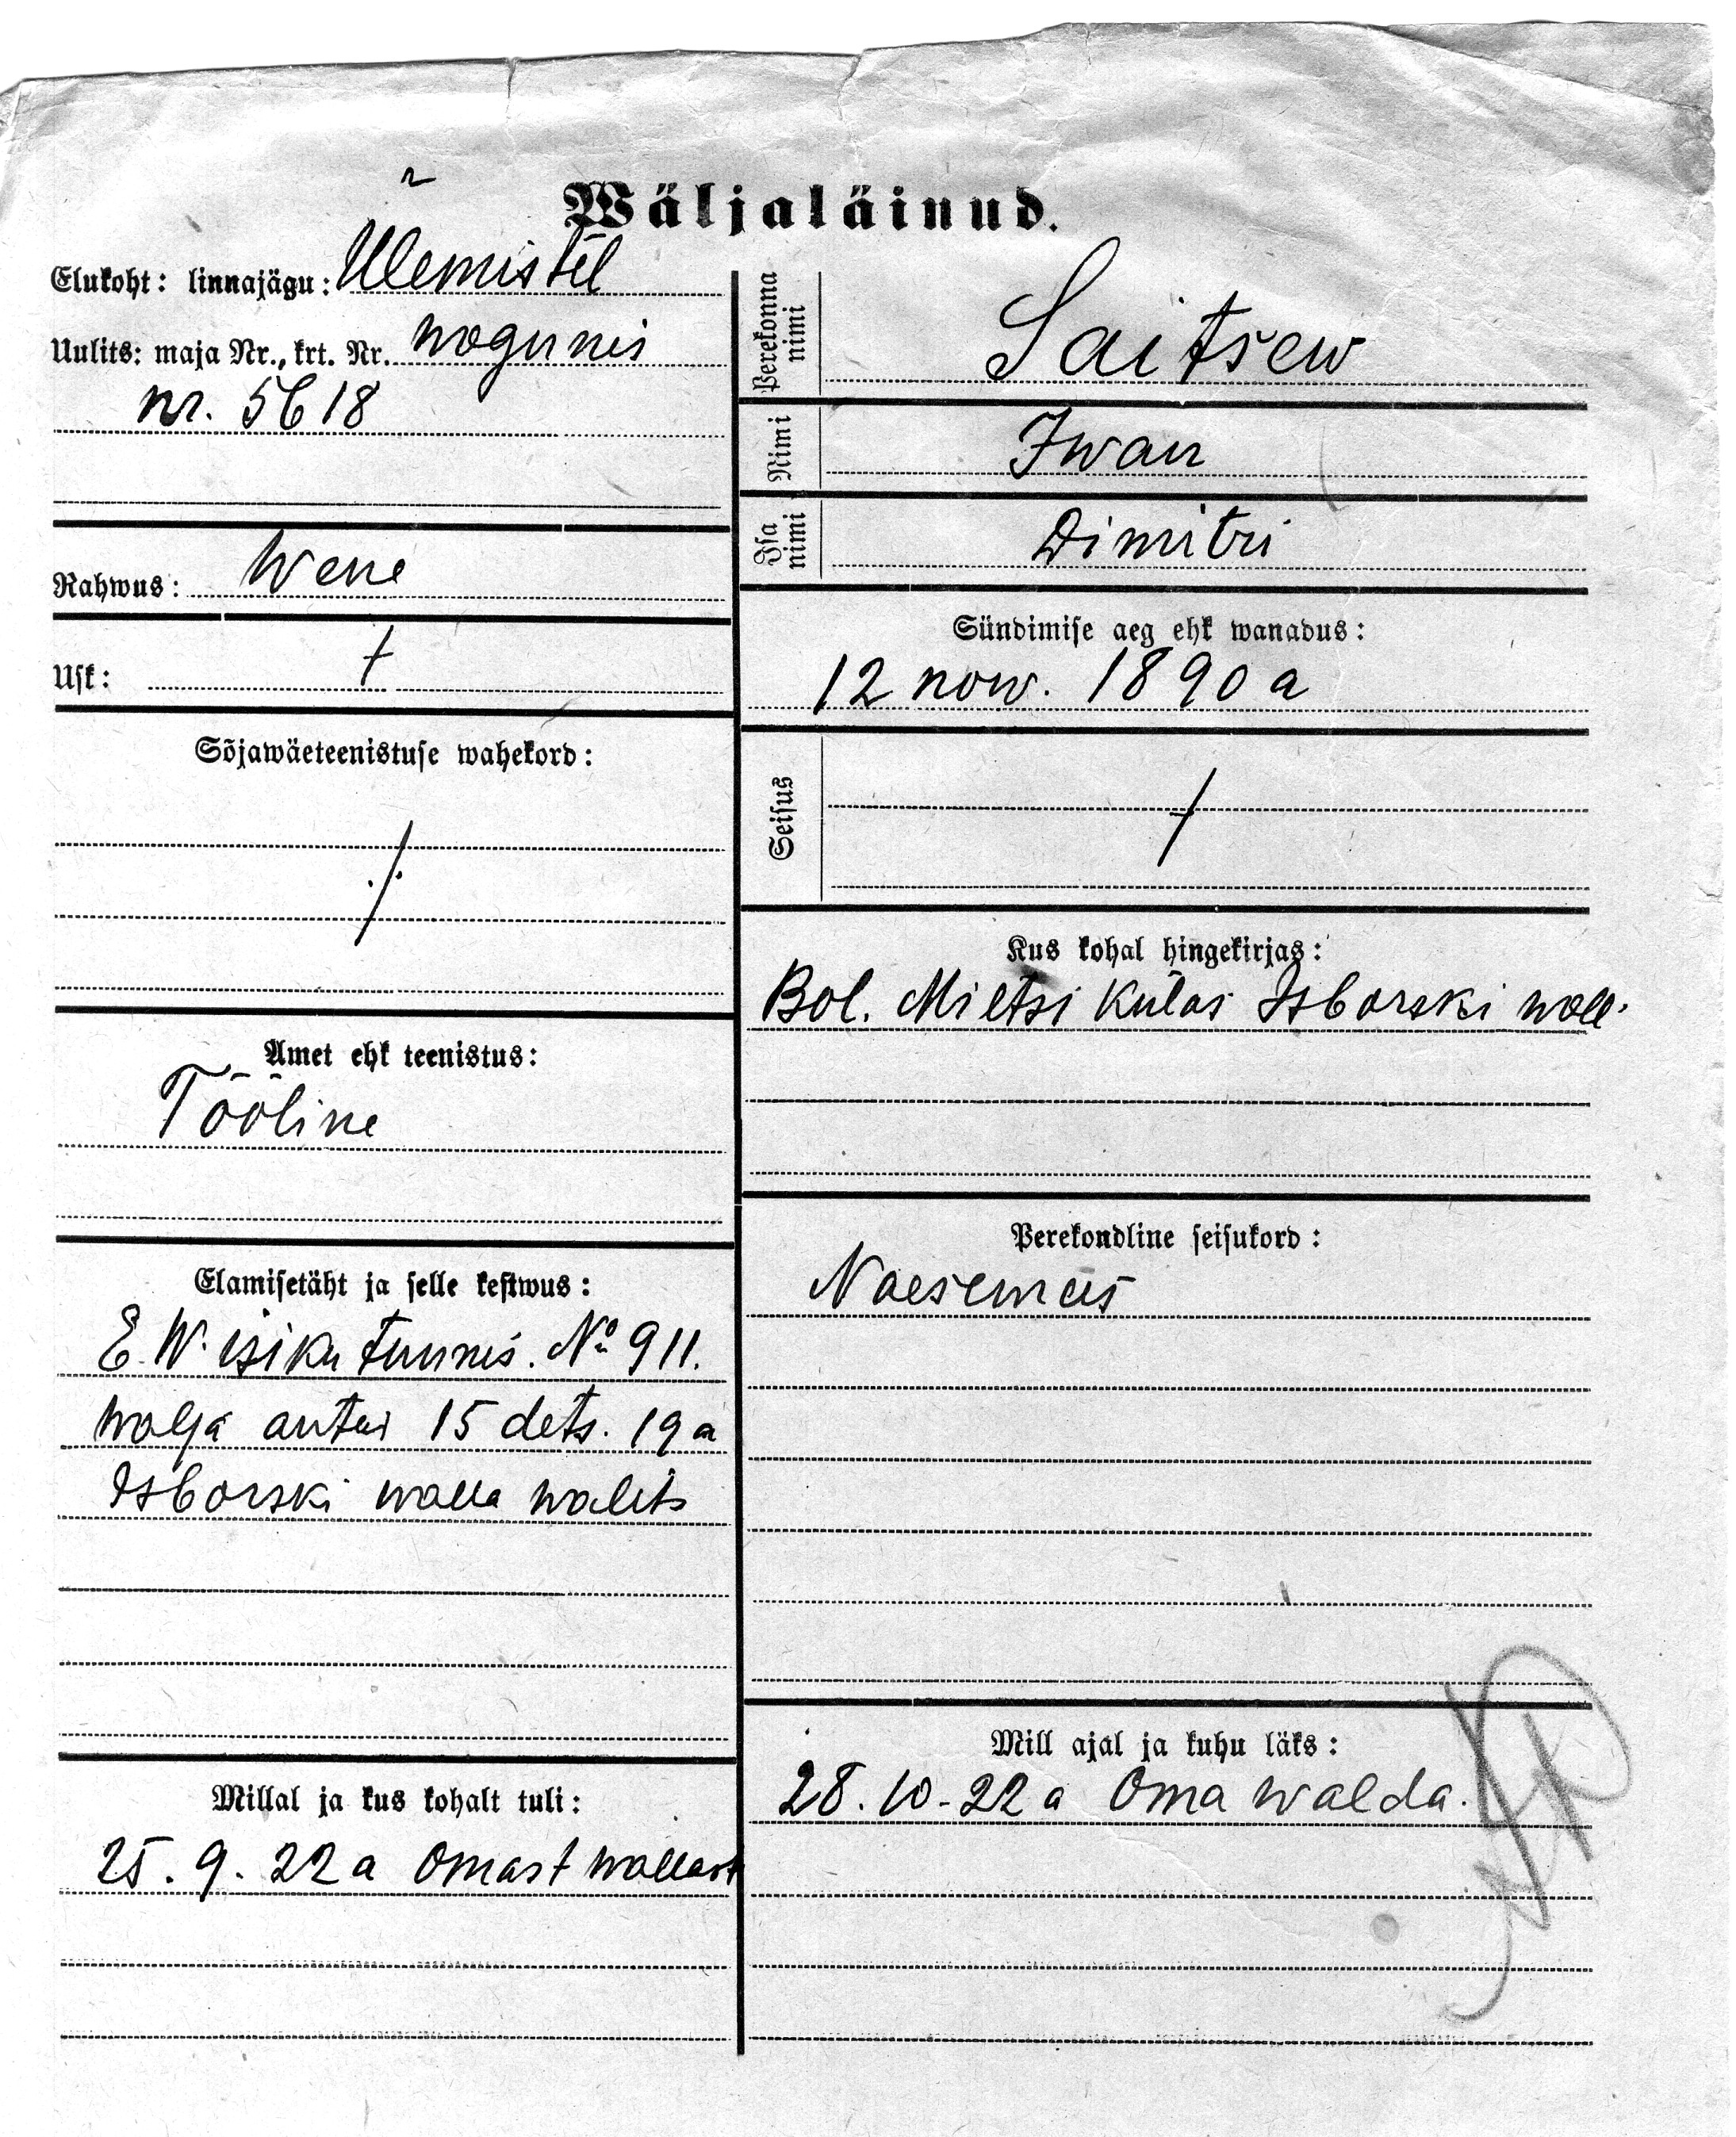 Wäljaläinud.
Elukoht: linnajägu: Ülemistel
Uulits: maja Nr., krt. Nr. wogunis
nr. 5618
Rahwus: Wene
Usk:
Sõjawäeteenistuse wahekord:
Amet ehk teenistus:
Tööline
Elamisetäht ja selle kestwus:
E.W. isiku tunnis. No 911.
walja antus 15 dets. 19 a
Isborski walla walits
Millal ja kus kohalt tuli:
25. 9. 22 a Omast wallast
Perekonna nimi Saitsew
Nimi Iwan
Isa nimi Dimitri
Sündimise aeg ehk wanadus:
12 now. 1890 a
Seisus
Kus kohal hingekirjas:
Bol. Mietsi külas Isborski wall.
Perekondline seisukord:
Naesemees
Mill ajal ja kuhu läks:
28. 10 - 22 a Oma walda.